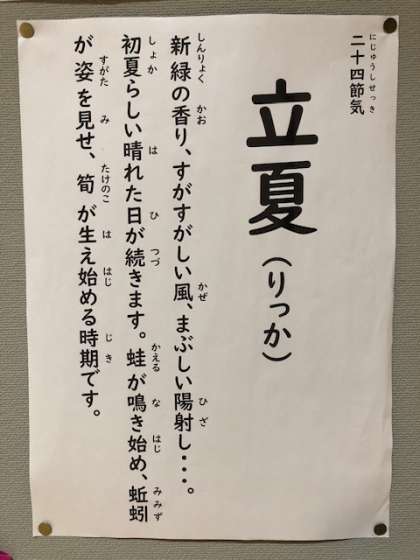 二十四節気
にじゅうしせっき
立夏（りっか）
新緑の香り、すがすがしい風、まぶしい陽射し・・・。
しんりょく かお かぜ ひざ
初夏らしい晴れた日が続きます。蛙が鳴き始め、蚯蚓
しょか は ひ つづ かえる な はじ みみず
が姿を見せ、筍が生え始める時期です。
すがた み たけのこ は はじ じき